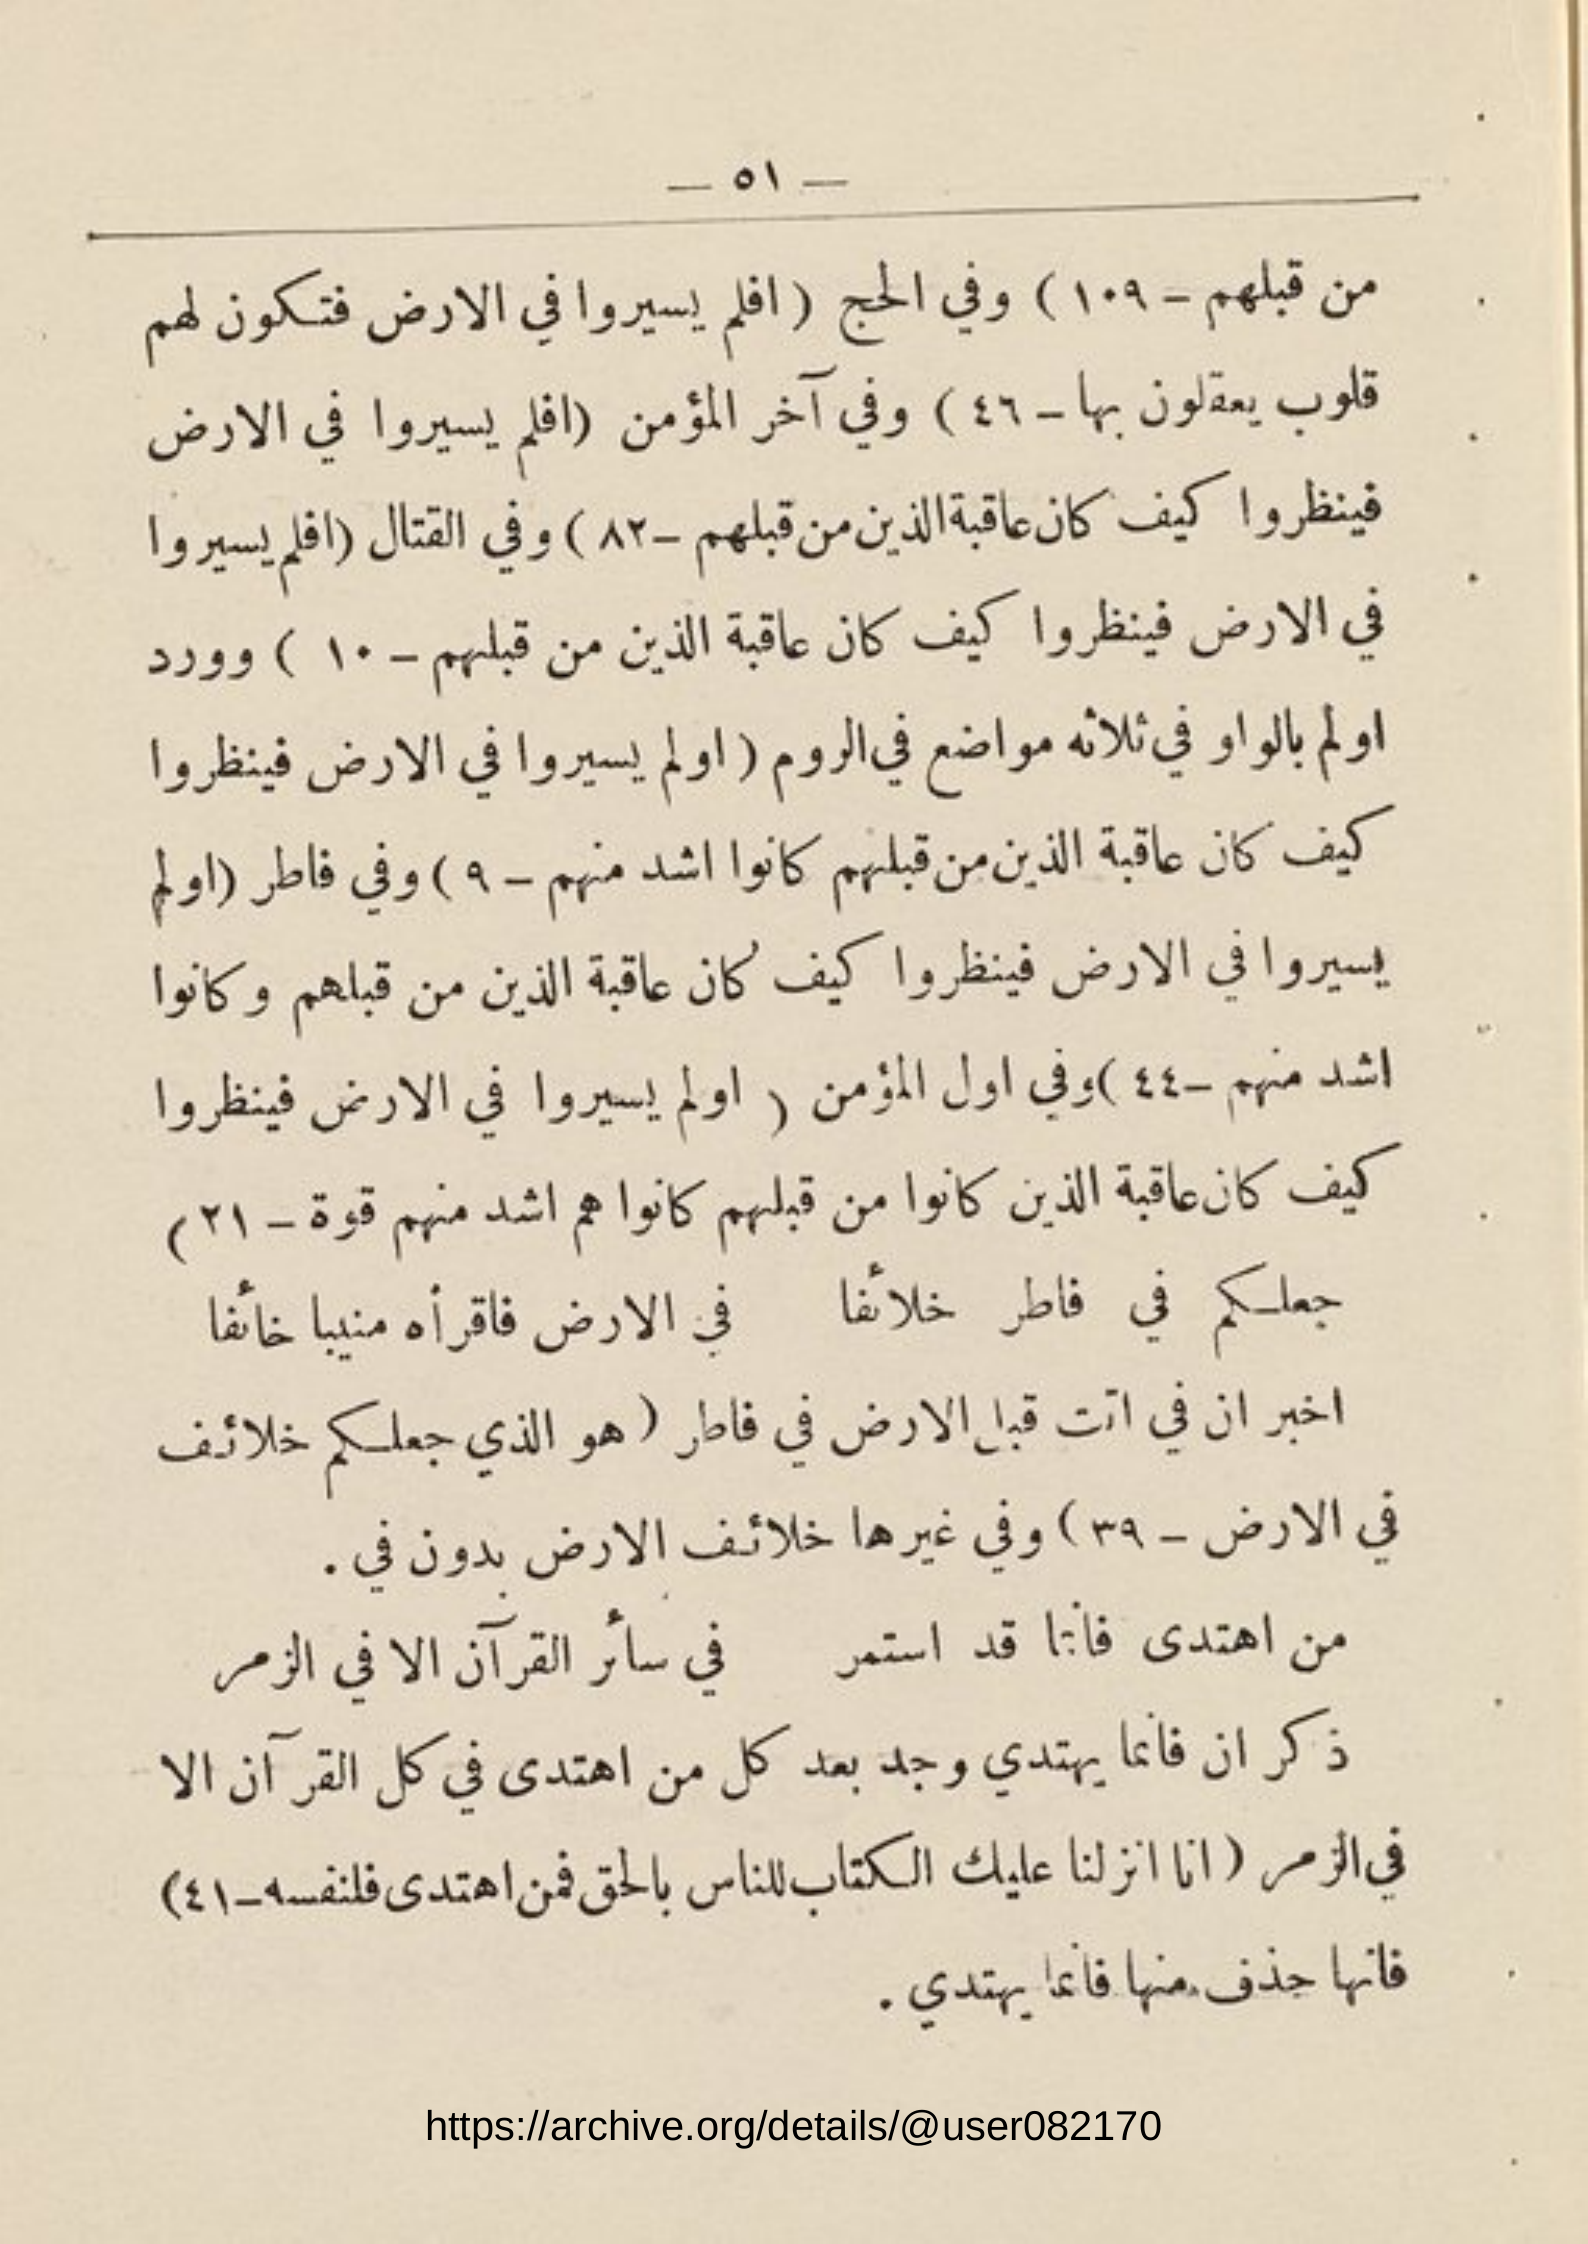 — ٥١ —
من قبلهم – ١٠٩ ) وفي الحج ( افلم يسيروا في الارض فتكون لهم
قلوب يعقلون بها – ٤٦ ) وفي آخر المؤمن (افلم يسيروا في الارض
فينظروا كيف كان عاقبة الذين من قبلهم – ٨٢ ) وفي القتال (افلم يسيروا
في الارض فينظروا كيف كان عاقبة الذين من قبلهم – ١٠ ) وورد
اولم بالواو في ثلاثه مواضع في الروم ( اولم يسيروا في الارض فينظروا
كيف كان عاقبة الذين من قبلهم كانوا اشد منهم – ٩ ) وفي فاطر (اولم
يسيروا في الارض فينظروا كيف كان عاقبة الذين من قبلهم وكانوا
اشد منهم – ٤٤ ) وفي اول المؤمن ( اولم يسيروا في الارض فينظروا
كيف كان عاقبة الذين كانوا من قبلهم كانوا هم اشد منهم قوة – ٢١ )
جعلكم في فاطر خلائفا في الارض فاقرأه منيبا خائفا
اخبر ان في اتت قبل الارض في فاطر ( هو الذي جعلكم خلائف
في الارض – ٣٩ ) وفي غيرها خلائف الارض بدون في .
من اهتدى فانما قد استمر في سائر القرآن الا في الزمر
ذكر ان فانما يهتدي وجد بعد كل من اهتدى في كل القرآن الا
في الزمر ( انا انزلنا عليك الكتاب للناس بالحق فمن اهتدى فلنفسه – ٤١ )
فانها حذف منها فانما يهتدي .
https://archive.org/details/@user082170